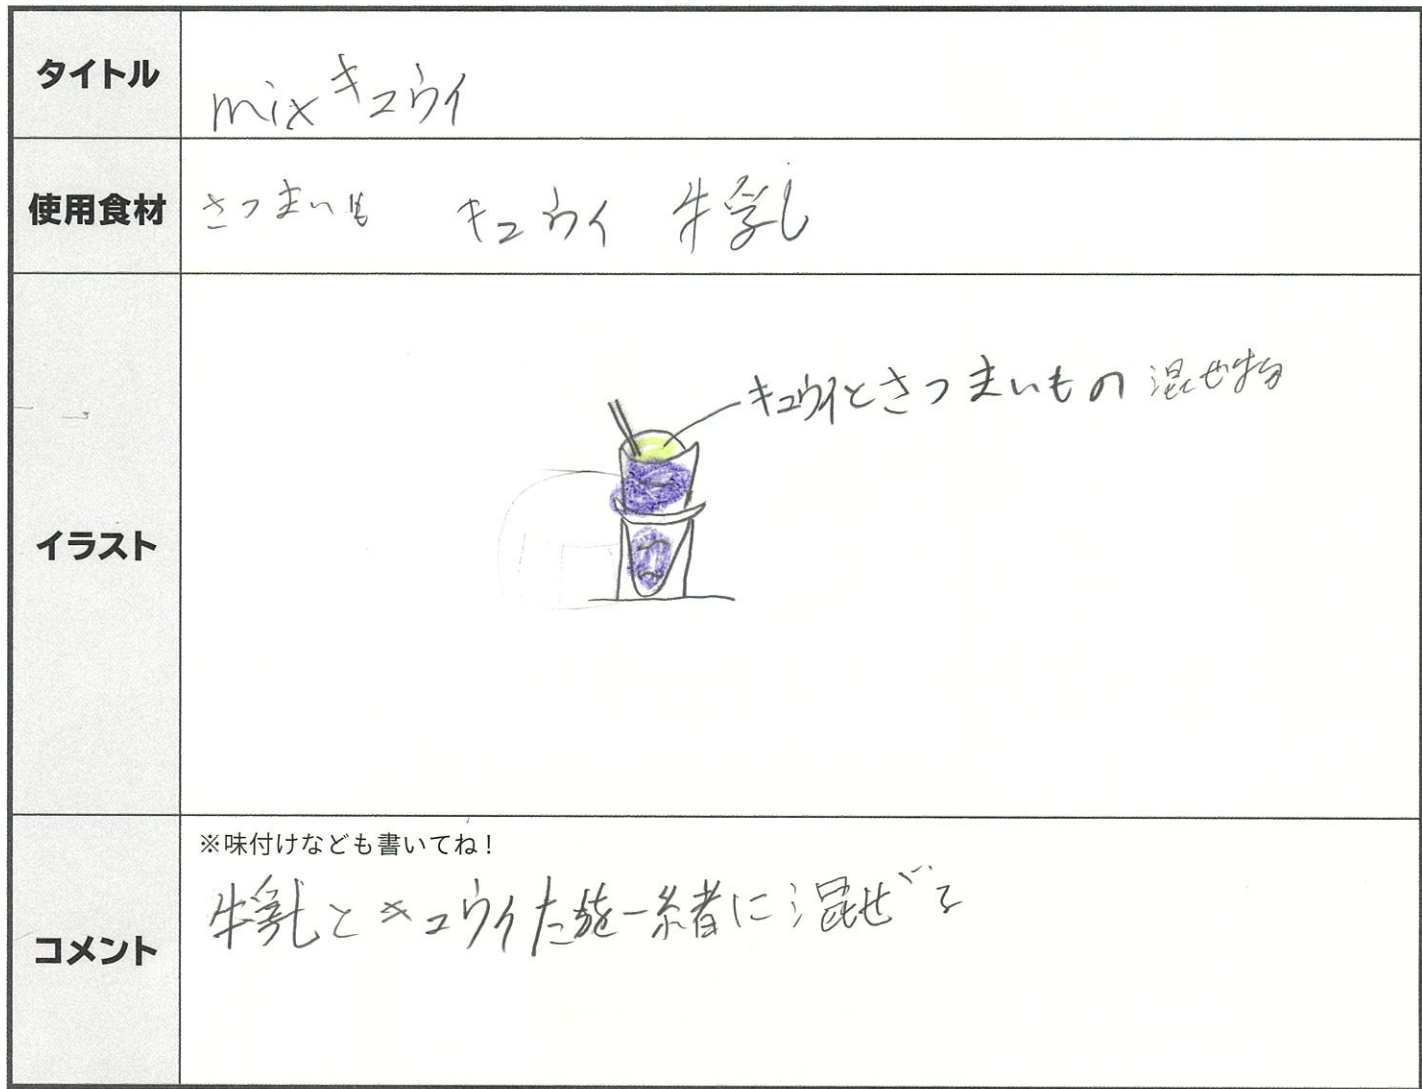 タイトル
mixキュウイ
使用食材
さつまいも キュウイ 牛乳
イラスト
キュウイとさつまいもの混ぜ物
コメント
※味付けなども書いてね！
牛乳とキュウイ を一緒に混ぜる